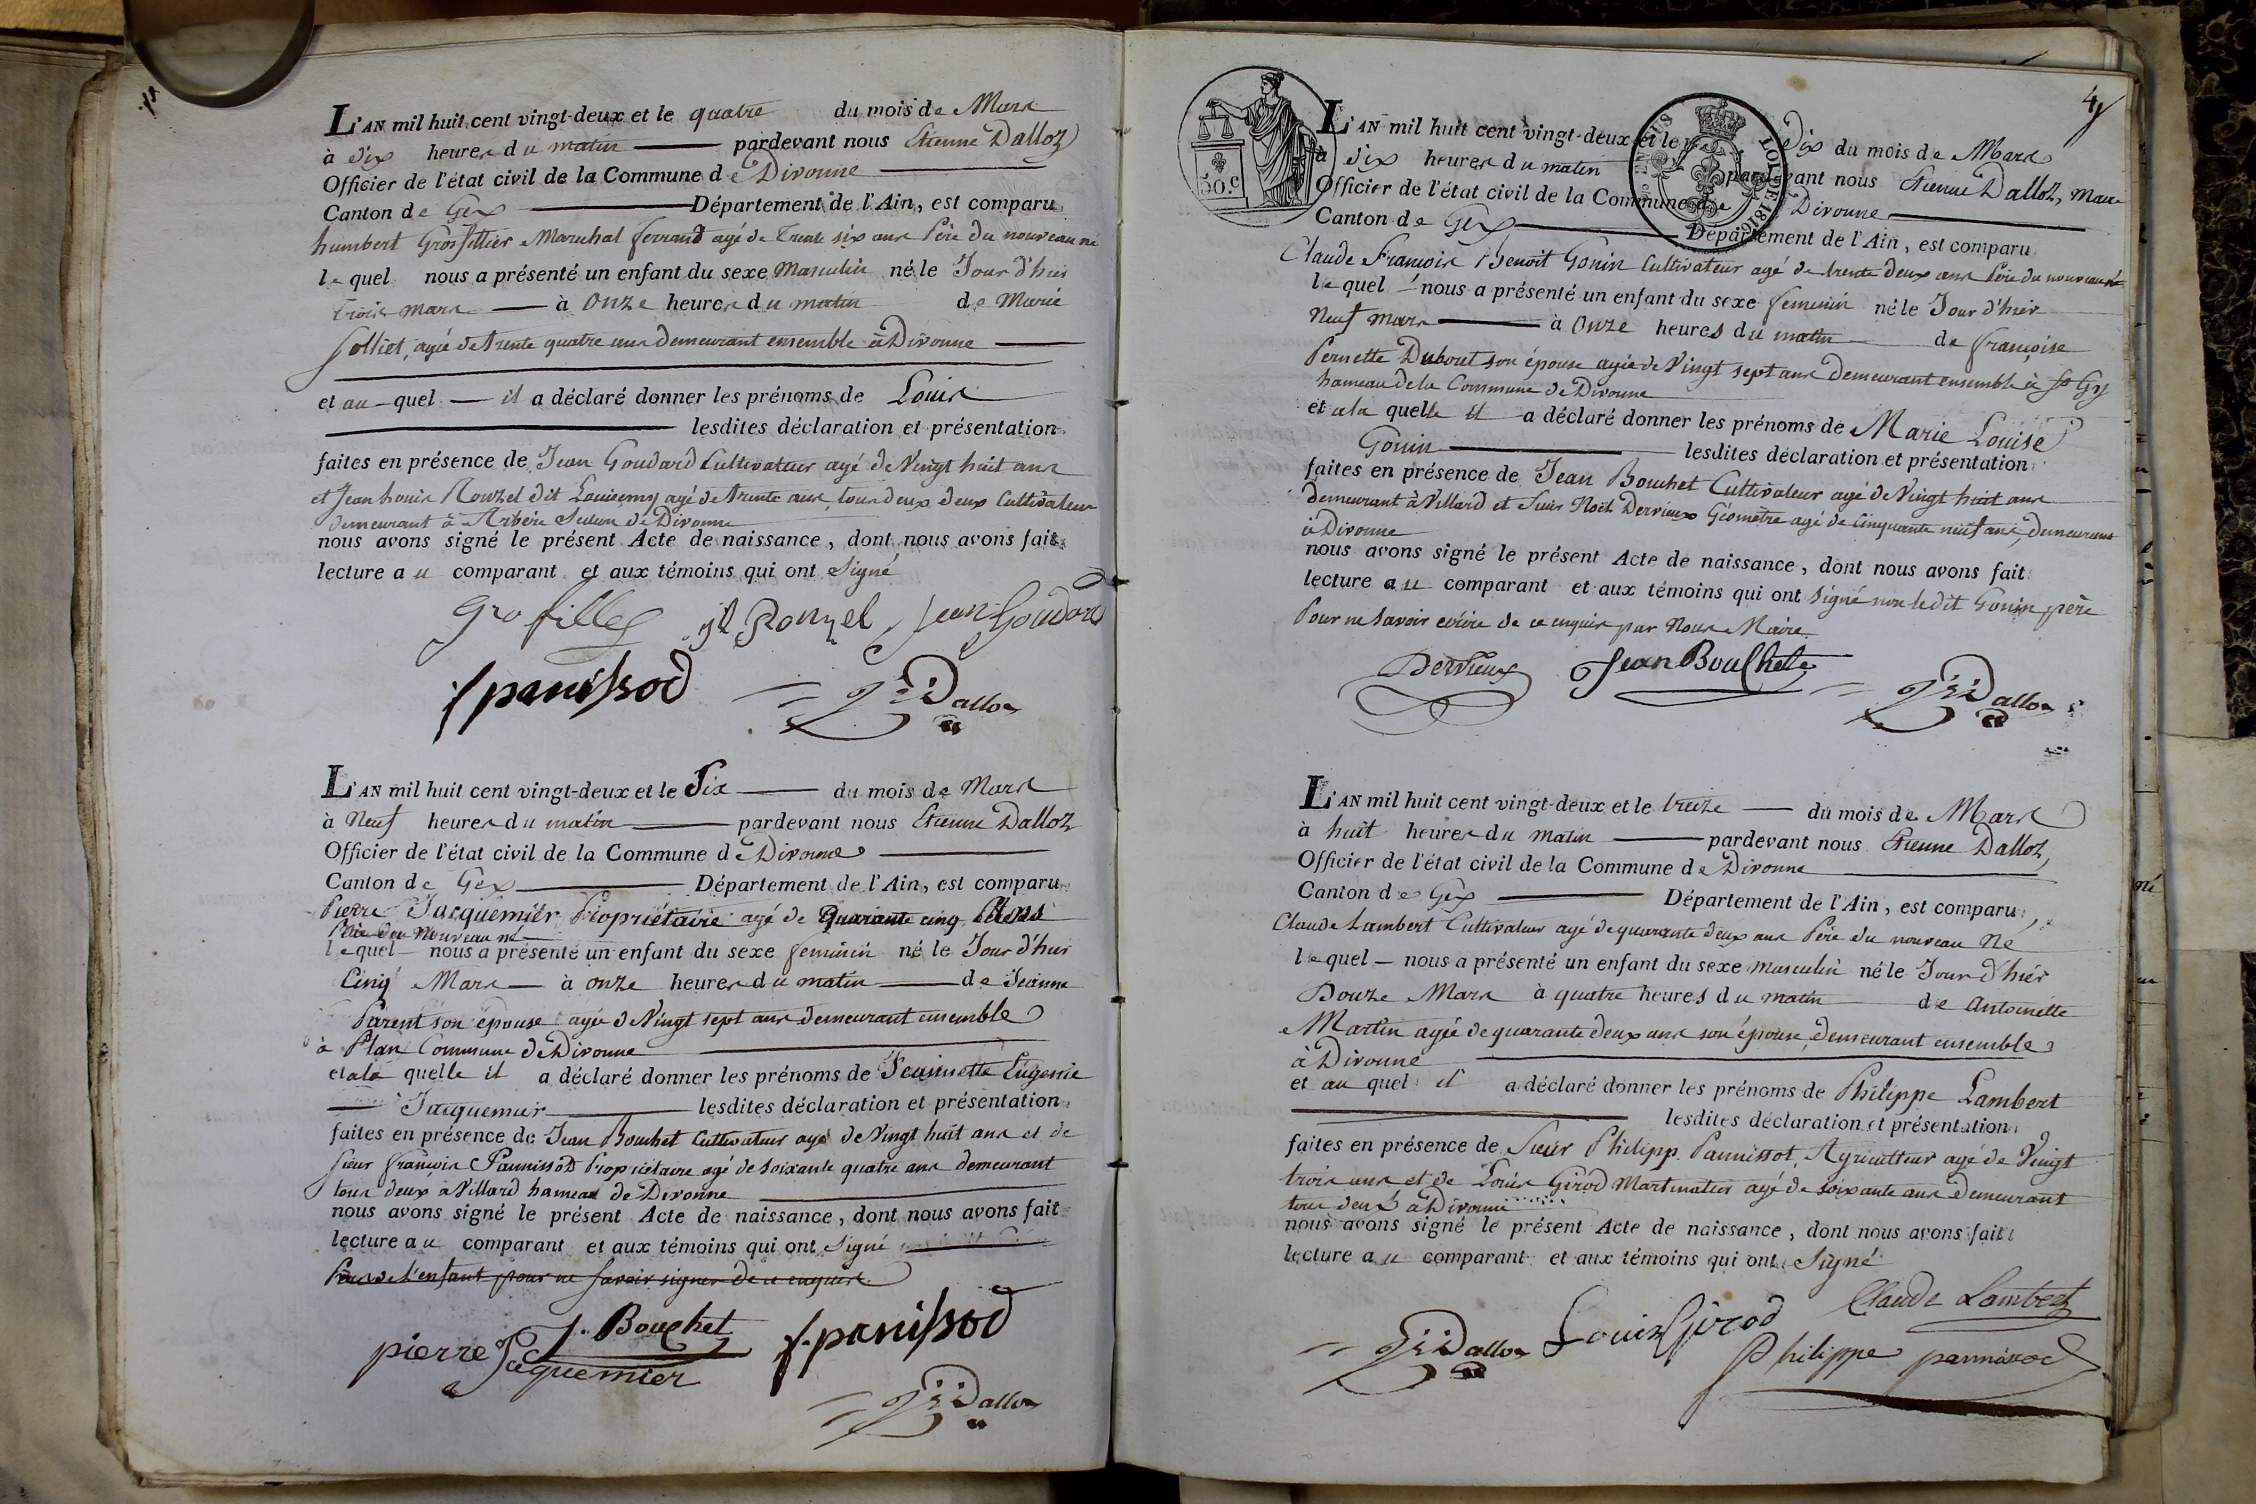 L'AN mil huit cent vingt-deux et le quatre du mois de Mars
à dix heures du matin pardevant nous Etienne Dalloz
Officier de l'état civil de la Commune de Divonne
Canton de Gex Département de l'Ain, est comparu
humbert Grosfillier Marechal ferrand agé de Trente six ans Père du nouveau né
lequel nous a présenté un enfant du sexe Masculin né le Jour d'hier
trois mars à onze heures du matin de Marie
Solliet, agée de trente quatre ans demeurant ensemble à Divonne
et au quel il a déclaré donner les prénoms de Louis
lesdites déclaration et présentation
faites en présence de Jean Goudard Cultivateur agé de Vingt huit ans
et Jean Louis Rouzel dit agé de trente ans, tous deux deux Cultivateurs
demeurant à Arbère de Divonne
nous avons signé le présent Acte de naissance, dont nous avons fait
lecture au comparant et aux témoins qui ont Signé
Grofilley jl Ronzel jean Goudard
f panissod Dalloz
L'AN mil huit cent vingt-deux et le Six du mois de Mars
à Neuf heures du matin pardevant nous Etienne Dalloz
Officier de l'état civil de la Commune de Divonne
Canton de Gex Département de l'Ain, est comparu
Pierre Jacquemier Propriétaire agé de Quarante cinq ans
Père du Nouveau né
lequel nous a présenté un enfant du sexe feminin né le Jour d'hier
Cinq Mars à onze heures du matin de Jeanne
Parent son épouse agée de Vingt sept ans demeurant ensemble
à Plan Commune de Divonne
et à la quelle il a déclaré donner les prénoms de Jeannette Eugenie
Jacquemier lesdites déclaration et présentation
faites en présence de Jean Bouchet Cultivateur agé de Vingt huit ans et de
sieur françois Pannissod Propriétaire agé de soixante quatre ans demeurant
tous deux à Villard hameau de Divonne
nous avons signé le présent Acte de naissance, dont nous avons fait
lecture au comparant et aux témoins qui ont Signé
de l'enfant pour ne savoir signer de ce enquis
pierre Jaquemier J. Bouchet f. panissod
Dalloz
4
50 c
TIMBRE
LOI DE 1816
L'AN mil huit cent vingt-deux et le Dix du mois de Mars
à dix heures du matin pardevant nous Etienne Dalloz, Maire
Officier de l'état civil de la Commune de Divonne
Canton de Gex Département de l'Ain, est comparu
Claude François Benoit Gonin Cultivateur agé de trente deux ans Père du nouveau né
lequel nous a présenté un enfant du sexe feminin né le Jour d'hier
Neuf mars à Onze heures du matin de françoise
Pernette Dubout son épouse agée de Vingt sept ans demeurant ensemble à St Gix
hameau de la Commune de Divonne
et a la quelle il a déclaré donner les prénoms de Marie Louise
Gonin lesdites déclaration et présentation
faites en présence de Jean Bouchet Cultivateur agé de Vingt huit ans
demeurant à Villard et Sieur Noël Dervieux Géomètre agé de Cinquante neuf ans, demeurant
à Divonne
nous avons signé le présent Acte de naissance, dont nous avons fait
lecture au comparant et aux témoins qui ont Signé non ledit Gonin père
Pour ne savoir écrire de ce enquis par Nous Maire
Dervieux Jean Bouchet Dalloz
L'AN mil huit cent vingt-deux et le treize du mois de Mars
à huit heures du matin pardevant nous Etienne Dalloz,
Officier de l'état civil de la Commune de Divonne
Canton de Gex Département de l'Ain, est comparu
Claude Lambert Cultivateur agé de quarante deux ans Père du nouveau Né
lequel nous a présenté un enfant du sexe masculin né le Jour d'hier
Douze Mars à quatre heures du matin de Antoinette
Martin agée de quarante deux ans son épouse, demeurant ensemble
à Divonne
et au quel il a déclaré donner les prénoms de Philippe Lambert
lesdites déclaration et présentation
faites en présence de Sieur Philipp Pannissot, Agriculteur agé de Vingt
trois ans et de Louis Girod Martinatier agé de soixante ans demeurant
tous deux à Divonne
nous avons signé le présent Acte de naissance, dont nous avons fait
lecture au comparant et aux témoins qui ont Signé
Dalloz Louis Girod Claude Lambert
Philippe pannissod